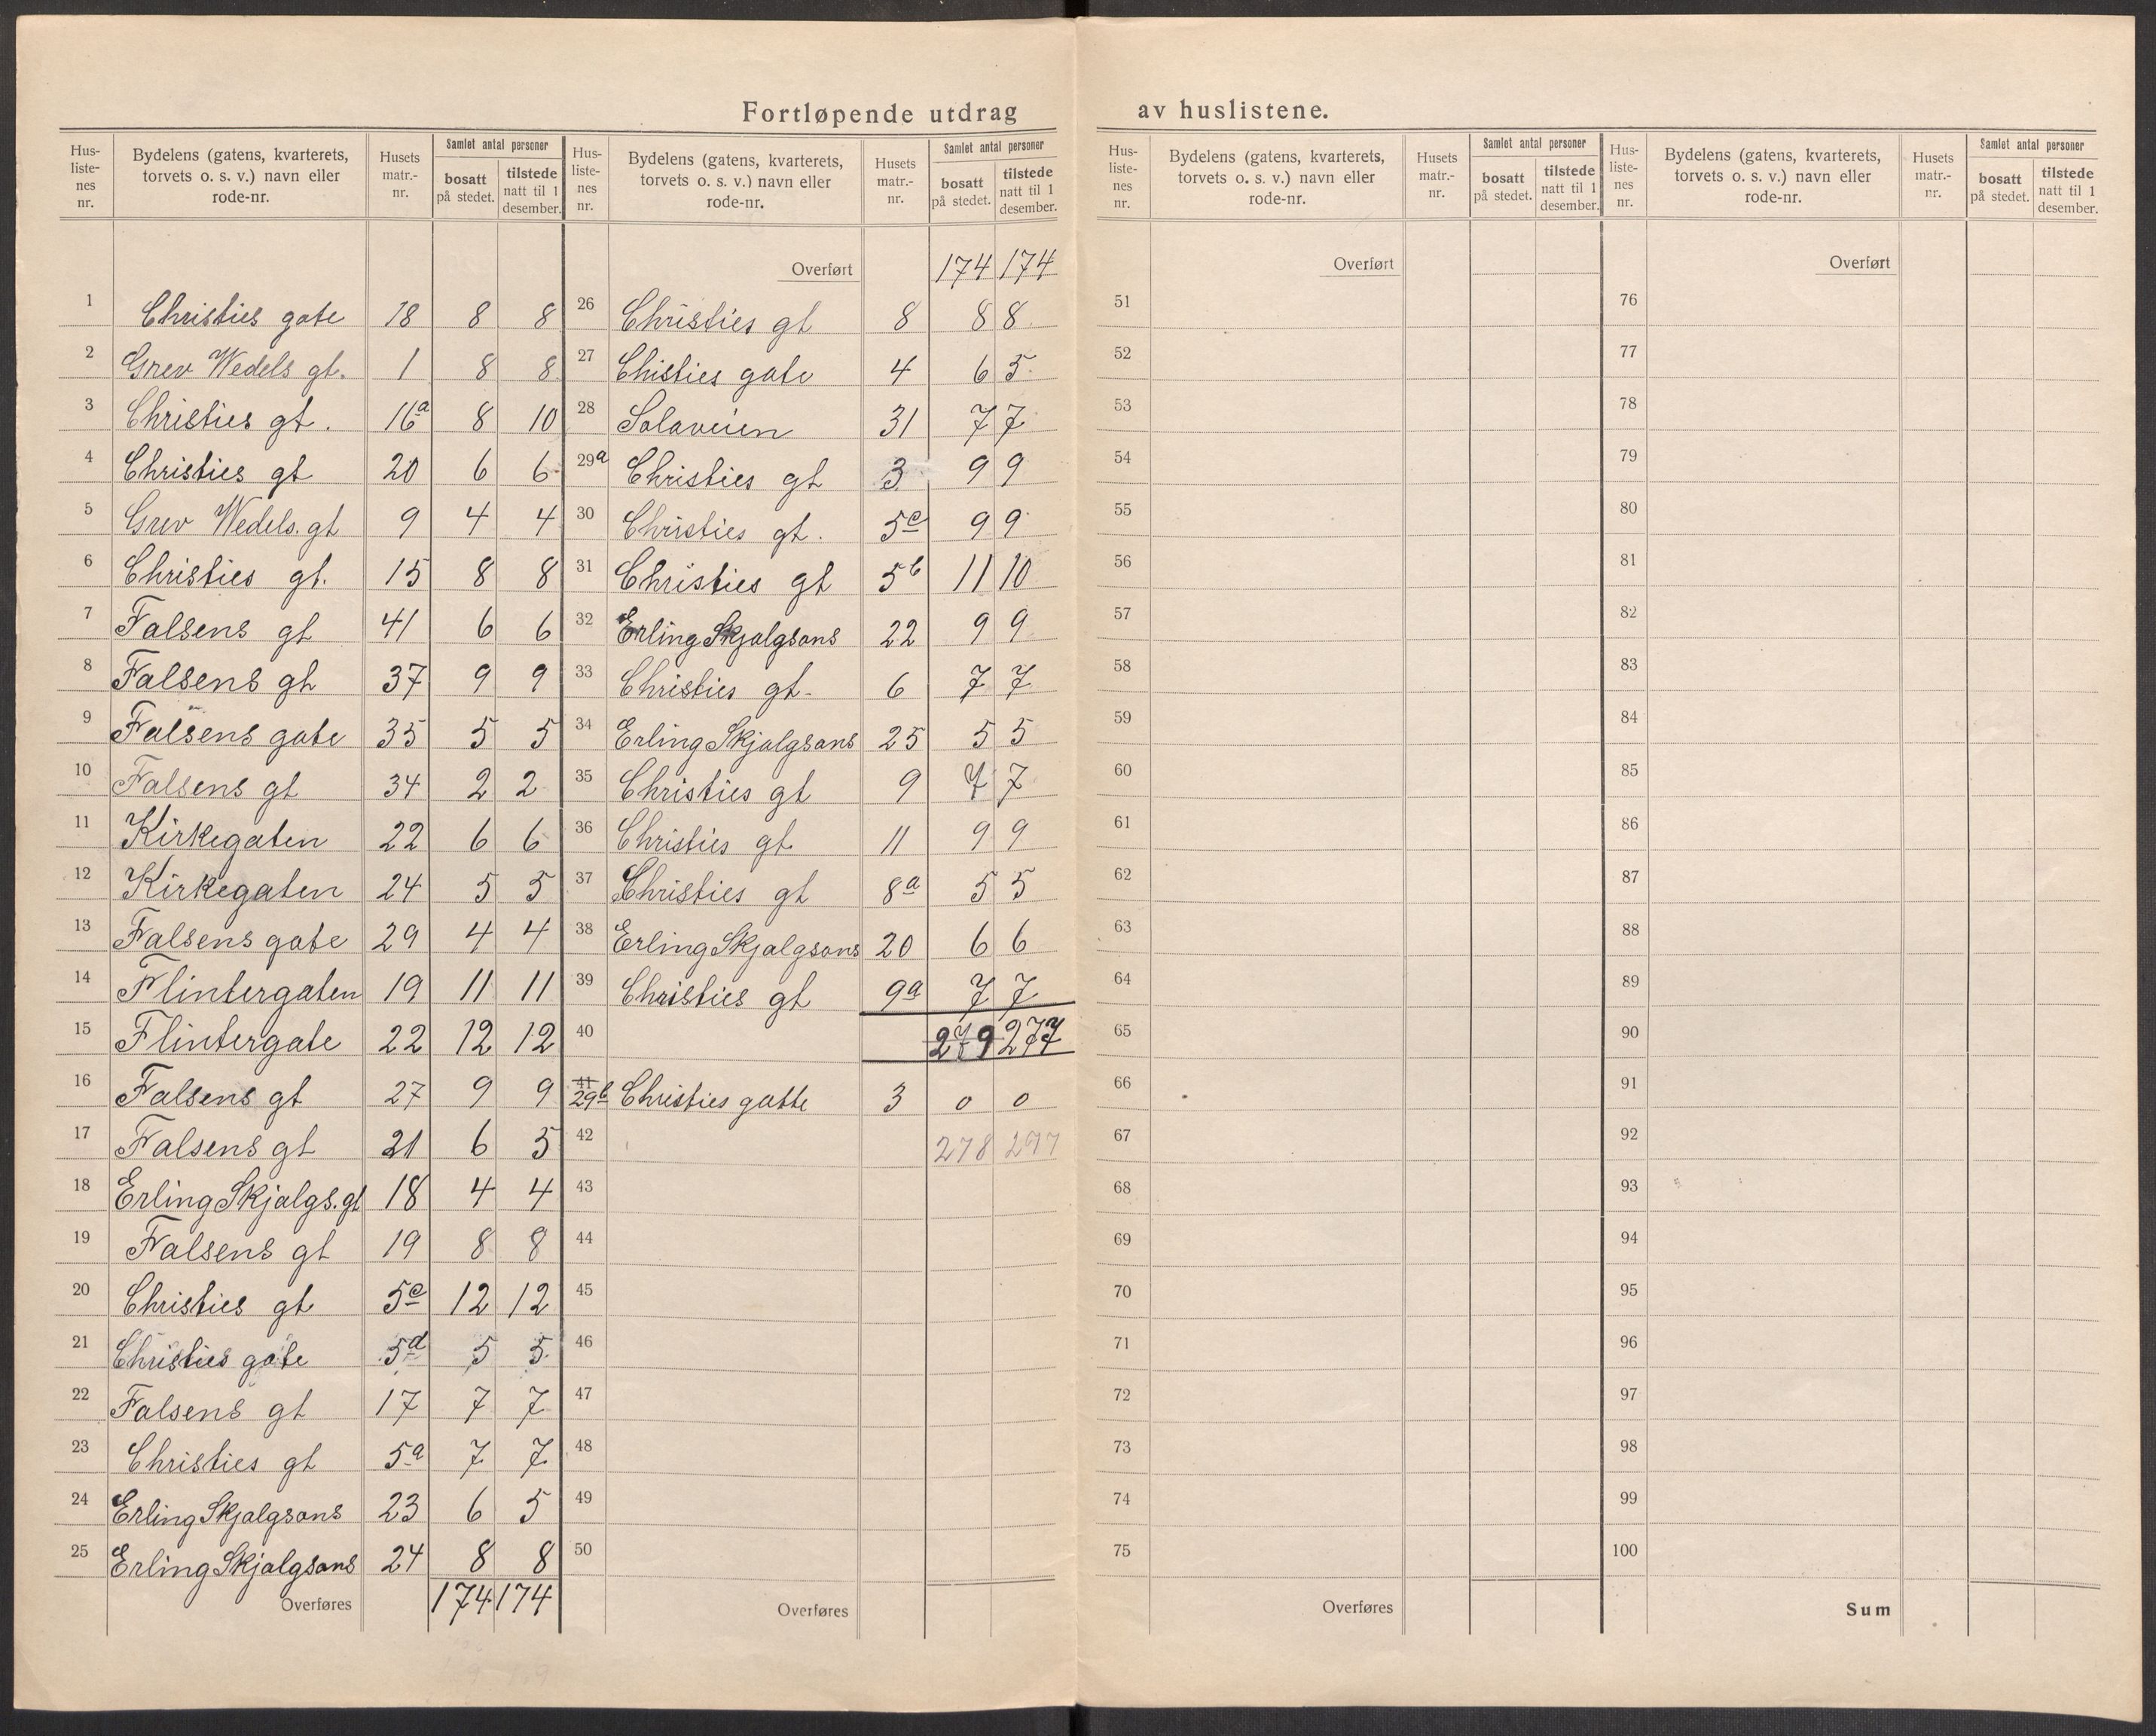 Fortløpende utdrag av huslistene.
Hus-listenes nr. Bydelens (gatens, kvarterets, torvets o. s. v.) navn eller rode-nr. Husets matr.-nr. Samlet antal personer bosatt på stedet. tilstede natt til 1 desember.
1 Christies gate 18 8 8
2 Grev Wedels gt. 1 8 8
3 Christies gt. 16a 8 10
4 Christies gt 20 6 6
5 Grev Wedels. gt 9 4 4
6 Christies gt. 15 8 8
7 Falsens gt 41 6 6
8 Falsens gt 37 9 9
9 Falsens gate 35 5 5
10 Falsens gt 34 2 2
11 Kirkegaten 22 6 6
12 Kirkegaten 24 5 5
13 Falsens gate 29 4 4
14 Flintergaten 19 11 11
15 Flintergate 22 12 12
16 Falsens gt 27 9 9
17 Falsens gt 21 6 5
18 Erling Skjalgs. gt 18 4 4
19 Falsens gt 19 8 8
20 Christies gt 5e 12 12
21 Christies gate 5d 5 5
22 Falsens gt 17 7 7
23 Christies gt 5a 7 7
24 Erling Skjalgsons 23 6 5
25 Erling Skjalgsons 24 8 8
Overføres 174 174
Hus-listenes nr. Bydelens (gatens, kvarterets, torvets o. s. v.) navn eller rode-nr. Husets matr.-nr. Samlet antal personer bosatt på stedet. tilstede natt til 1 desember.
Overført 174 174
26 Christies gt 8 8 8
27 Chisties gate 4 6 5
28 Solaveien 31 7 7
29a Christies gt 3 9 9
30 Christies gt. 5c 9 9
31 Christies gt 5b 11 10
32 Erling Skjalgsons 22 9 9
33 Christies gt. 6 7 7
34 Erling Skjalgsons 25 5 5
35 Christies gt 9 7 7
36 Christies gt. 11 9 9
37 Christies gt 8a 5 5
38 Erling Skjalgsons 20 6 6
39 Christies gt 9a 7 7
40 279 277
41 29b Christies gatte 3 0 0
42 278 277
43
44
45
46
47
48
49
50
Overføres
Hus-listenes nr. Bydelens (gatens, kvarterets, torvets o. s. v.) navn eller rode-nr. Husets matr.-nr. Samlet antal personer bosatt på stedet. tilstede natt til 1 desember.
Overført
51
52
53
54
55
56
57
58
59
60
61
62
63
64
65
66
67
68
69
70
71
72
73
74
75
Overføres
Hus-listenes nr. Bydelens (gatens, kvarterets, torvets o. s. v.) navn eller rode-nr. Husets matr.-nr. Samlet antal personer bosatt på stedet. tilstede natt til 1 desember.
Overført
76
77
78
79
80
81
82
83
84
85
86
87
88
89
90
91
92
93
94
95
96
97
98
99
100
Sum